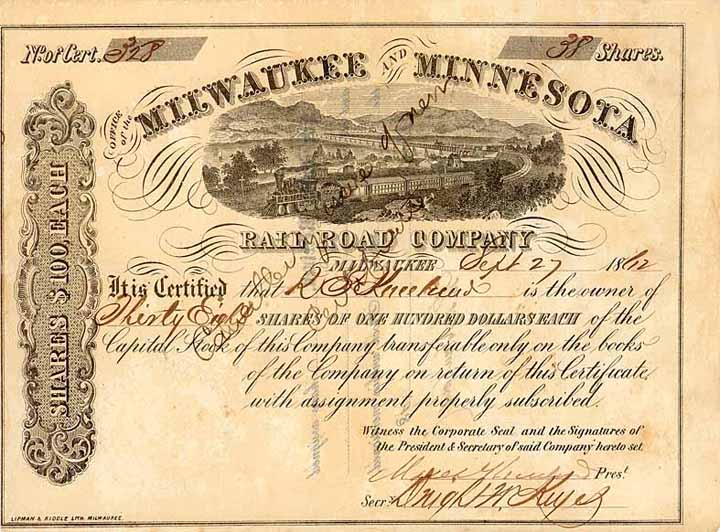 No. of Cert. 328 38 Shares.
OFFICE of the MILWAUKEE AND MINNESOTA
RAIL ROAD COMPANY
MILWAUKEE Sept 27 1862
It is Certified that is the owner of
Thirty Eight SHARES OF ONE HUNDRED DOLLARS EACH of the
Capital Stock of this Company transferable only on the books
of the Company on return of this Certificate
with assignment, properly subscribed.
Witness the Corporate Seal and the Signatures of
the President & Secretary of said Company hereto set.
Prest.
Secry.
SHARES $100, EACH
LIPMAN & RIDDLE LITH. MILWAUKEE.